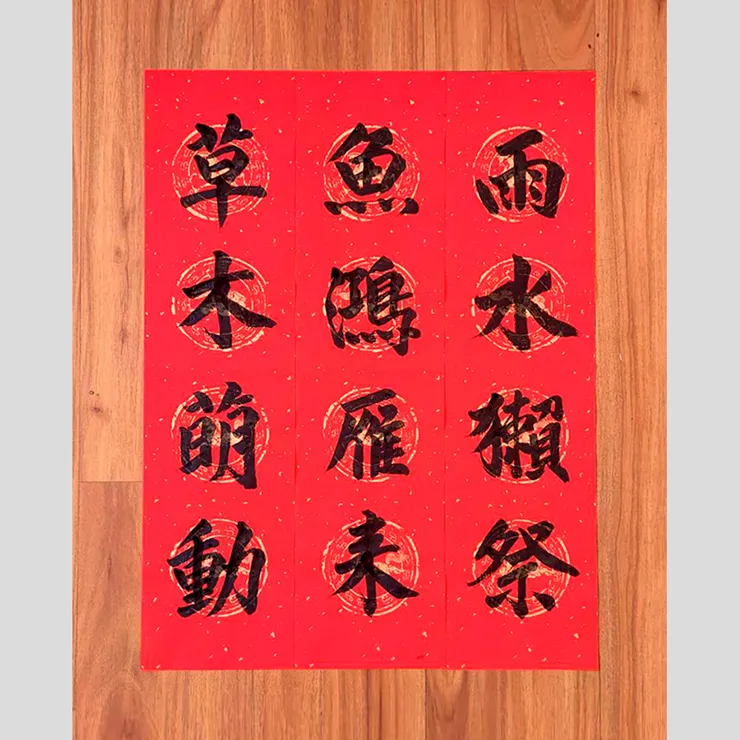 雨水獺祭
魚鴻雁来
草木萌動